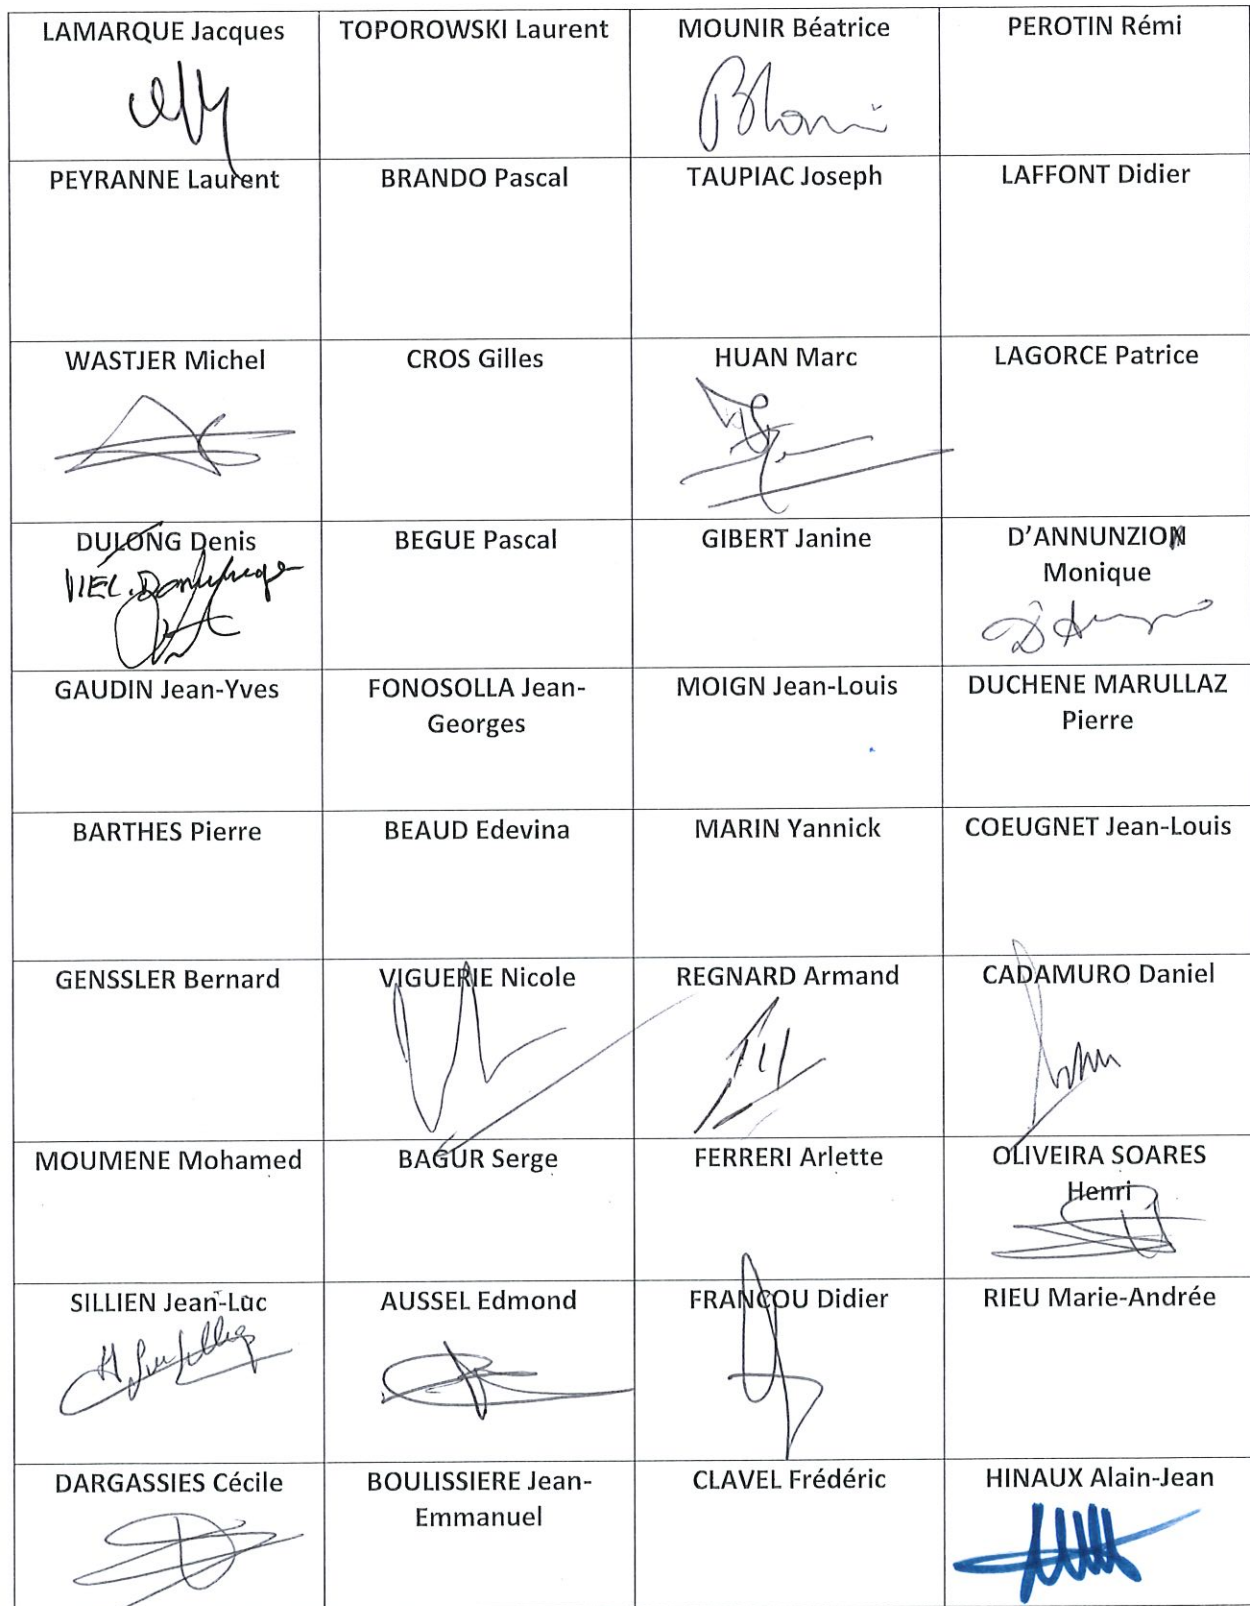 LAMARQUE Jacques
TOPOROWSKI Laurent
MOUNIR Béatrice
PEROTIN Rémi
PEYRANNE Laurent
BRANDO Pascal
TAUPIAC Joseph
LAFFONT Didier
WASTJER Michel
CROS Gilles
HUAN Marc
LAGORCE Patrice
DULONG Denis
VIEL
BEGUE Pascal
GIBERT Janine
D'ANNUNZION
Monique
GAUDIN Jean-Yves
FONOSOLLA Jean-
Georges
MOIGN Jean-Louis
DUCHENE MARULLAZ
Pierre
BARTHES Pierre
BEAUD Edevina
MARIN Yannick
COEUGNET Jean-Louis
GENSSLER Bernard
VIGUERIE Nicole
REGNARD Armand
CADAMURO Daniel
MOUMENE Mohamed
BAGUR Serge
FERRERI Arlette
OLIVEIRA SOARES
Henri
SILLIEN Jean-Luc
AUSSEL Edmond
FRANCOU Didier
RIEU Marie-Andrée
DARGASSIES Cécile
BOULISSIERE Jean-
Emmanuel
CLAVEL Frédéric
HINAUX Alain-Jean